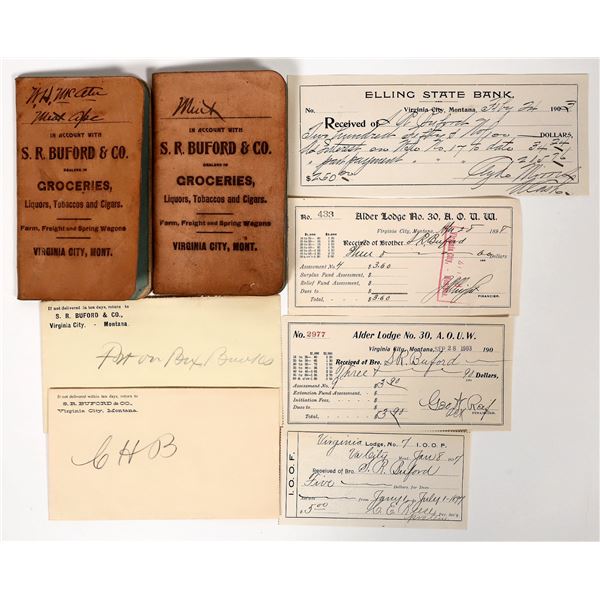 W.H. McAtee
IN ACCOUNT WITH
S. R. BUFORD & CO.
DEALERS IN
GROCERIES,
Liquors, Tobaccos and Cigars.
Farm, Freight and Spring Wagons
VIRGINIA CITY, MONT.
Mint
IN ACCOUNT WITH
S. R. BUFORD & CO.
DEALERS IN
GROCERIES,
Liquors, Tobaccos and Cigars.
Farm, Freight and Spring Wagons
VIRGINIA CITY, MONT.
ELLING STATE BANK.
No. Virginia City, Montana, 190
Received of S. R. Buford
Two hundred & fifty & No/100 DOLLARS,
Interest on No 17 to date 34 24
" part payment " " " 215 76
$250 00
No. 433 Alder Lodge No. 30, A. O. U. W.
Virginia City, Montana, 8 1898
Received of Brother S R Buford
Dollars
Assessment No. 4 $3.60
Surplus Fund Assessment,
Relief Fund Assessment,
Dues to
Total, $3.60
FINANCIER.
No. 2977 Alder Lodge No. 30, A. O. U. W.
Virginia City, Montana, SEP 26 1903 190
Received of Bro. S. R. Buford
Three & 90 Dollars,
Assessment No. $3.90
Extension Fund Assessment,
Initiation Fees,
Dues to
Total, $3.90
FINANCIER.
I. O. O. F.
Virginia Lodge, No. 7 I. O. O. F.
Va City Mont. Jan 8 1897
Received of Bro. S. R. Buford
Five Dollars for Dues
from Jany 1 to July 1-1897
$5.00
C E Rec. Sec'y
If not delivered in ten days, return to
S. R. BUFORD & CO.,
Virginia City. - Montana.
If not delivered within ten days, return to
S. R. BUFORD & CO.
Virginia City, Montana.
C H B